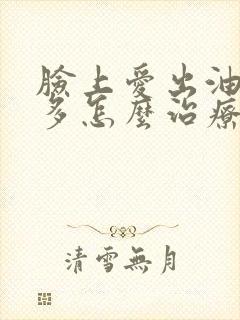 臉上愛出油
多怎麼治療
清雪無月